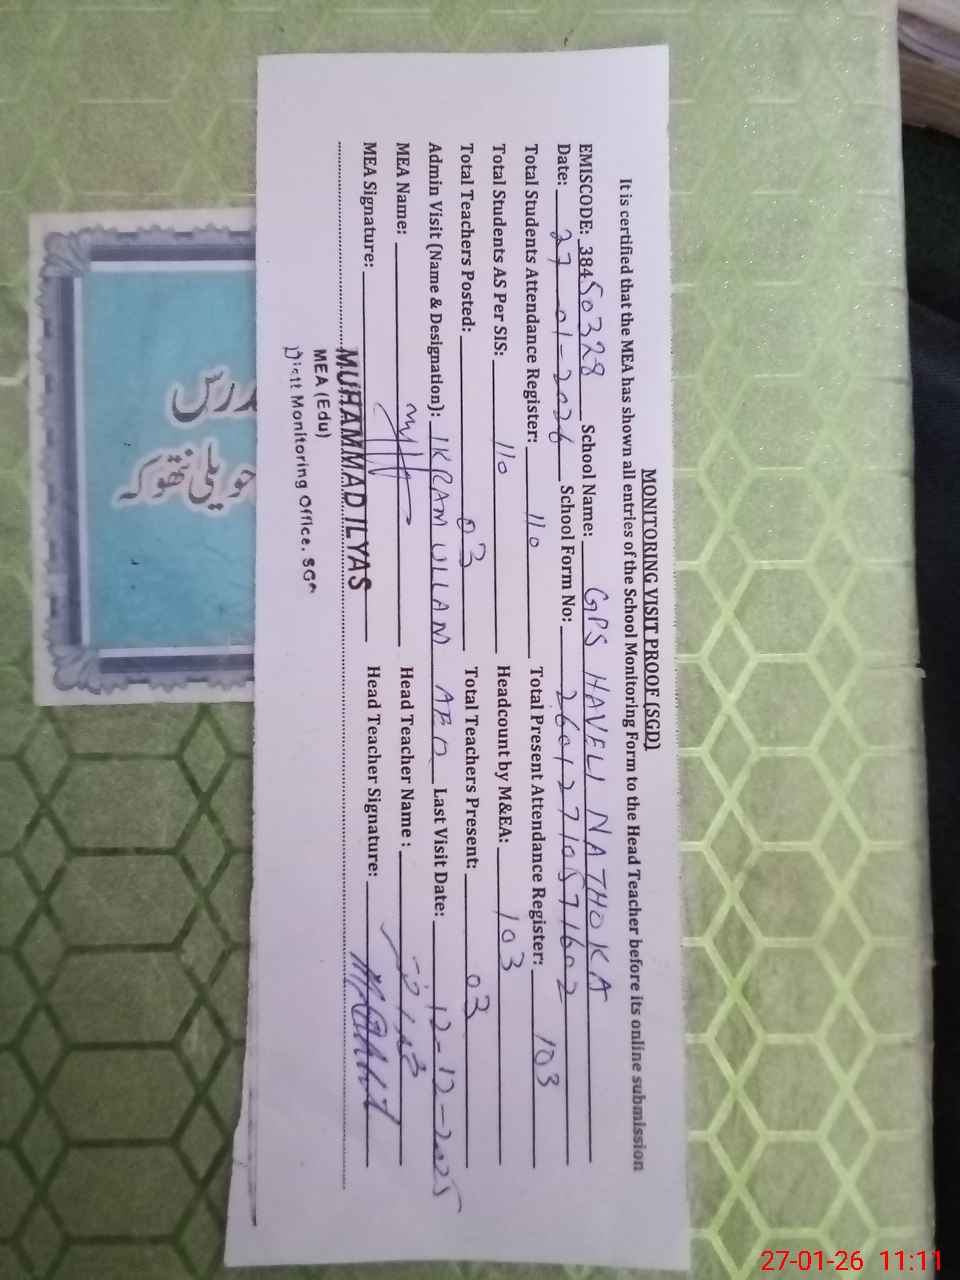 MONITORING VISIT PROOF (SGD)
It is certified that the MEA has shown all entries of the School Monitoring Form to the Head Teacher before its online submission
EMISCODE: 38450328 School Name: GPS HAVELI NATHOKA
Date: 27-01-2026 School Form No: 26012710571602
Total Students Attendance Register: 110 Total Present Attendance Register: 103
Total Students AS Per SIS: 110 Headcount by M&EA: 103
Total Teachers Posted: 03 Total Teachers Present: 03
Admin Visit (Name & Designation): IKRAM ULLAH AEO Last Visit Date: 12-12-2025
MEA Name: Head Teacher Name :
MEA Signature: Head Teacher Signature:
MUHAMMAD ILYAS
MEA (Edu)
Distt Monitoring Office, SGD
حویلی نتھوکہ
27-01-26 11:11